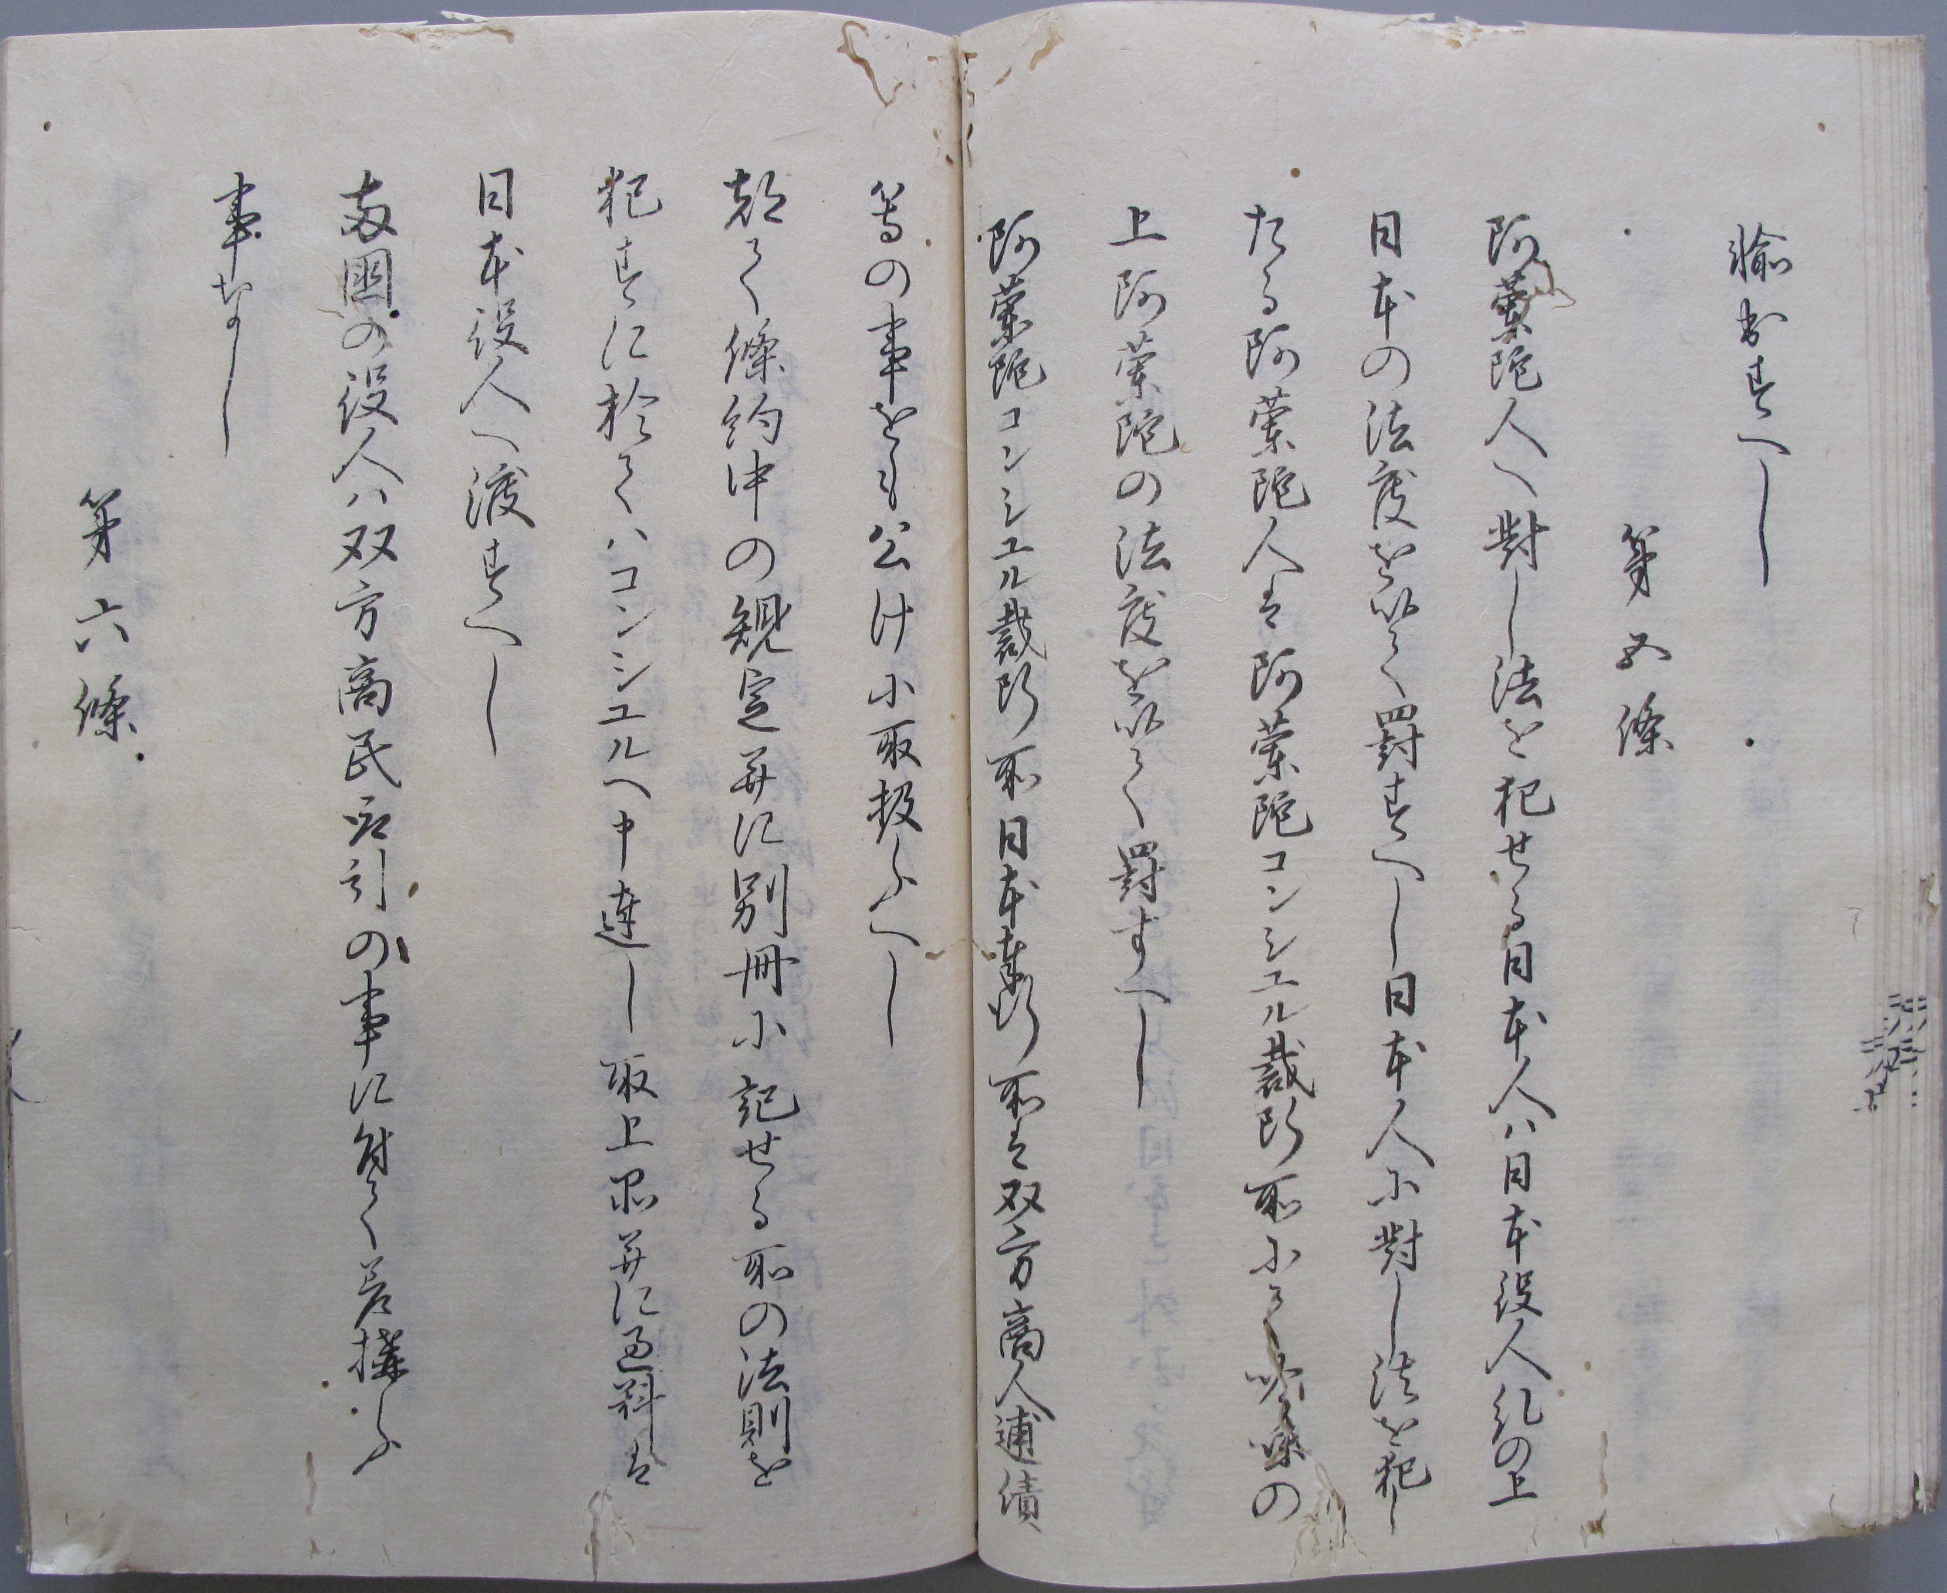 輸出すへし
第五條
阿蘭陀人へ對し法を犯せる日本人ハ日本役人糺の上
日本の法度を以て罰すへし日本人に對し法を犯し
たる阿蘭陀人は阿蘭陀コンシユル裁断所にて吟味の
上阿蘭陀の法度を以て罰すへし
阿蘭陀コンシユル裁断所日本奉行所は双方商人逋債
等の事をも公けに取扱ふへし
都て條約中の規定并に別冊に記せる所の法則を
犯すに於てハコンシユルへ申達し取上品并に過料は
日本役人へ渡すへし
両國の役人ハ双方商民取引の事に付て差構ふ
事なし
第六條